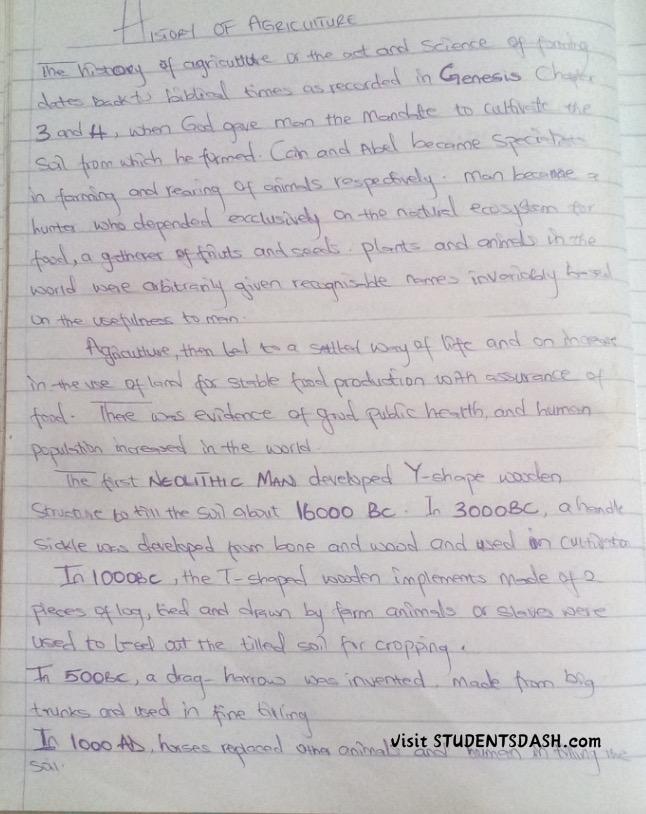 HISTORY OF AGRICULTURE
The history of agriculture or the act and science of farming
dates back to biblical times as recorded in Genesis Chapter
3 and 4, when God gave man the mandate to cultivate the
Soil from which he formed. Cain and Abel became
in farming and rearing of animals respectively. Man became a
hunter who depended exclusively on the natural ecosystem for
food, a gatherer of fruits and seeds. plants and animals in the
world were arbitrarily given recognisable names invariably based
on the usefulness to man.
Agriculture, then led to a settled way of life and an increase
in the use of land for stable food production with assurance of
food. There was evidence of good public health, and human
population increased in the world.
The first NEOLITHIC MAN developed Y-shape wooden
Structure to till the soil about 16000 BC. In 3000BC, a handle
Sickle was developed from bone and wood and used in
In 1000BC, the T-shaped wooden implements made of 2
pieces of log, tied and drawn by farm animals or slaves were
used to level out the tilled soil for cropping.
In 500BC, a drag-harrow was invented. Made from big
trunks and used in fine tilling
In 1000 AD, horses replaced other animals and human in tilling the
soil.
Visit STUDENTSDASH.com